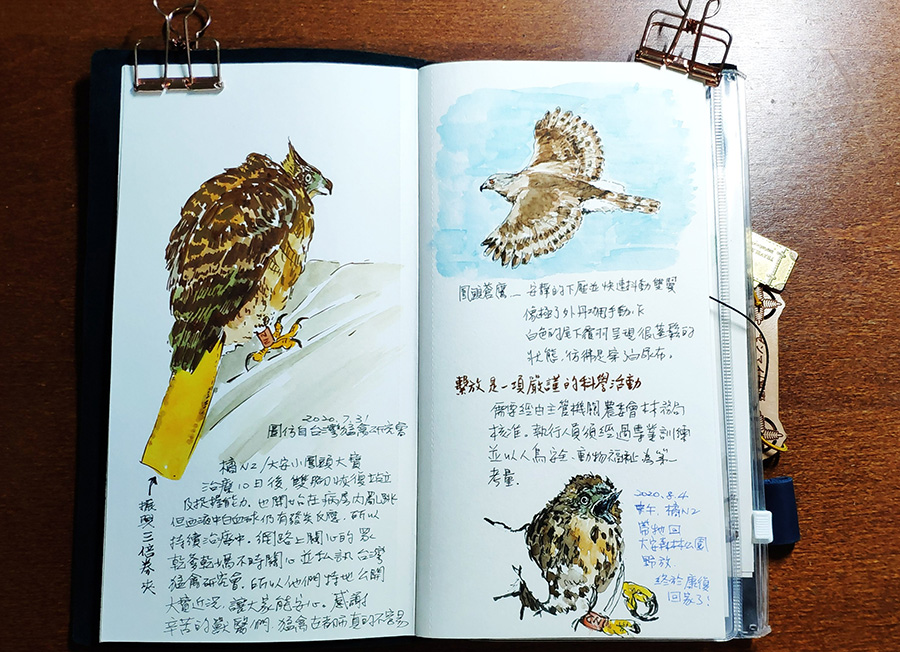 2020.7.31
圖仿自台灣猛禽研究會
橘N2/大安小鳳頭大寶
治療10日後,雙腳恢復站立
及抓握能力,也開始在病房內亂跳
但血液中白血球仍有發炎反應,所以
持續治療中,網路上關心的眾
乾爹乾媽不時關心並私訊台灣
猛禽研究會,所以他們特地公開
大寶近況,讓大家能安心。感謝
辛苦的獸醫們,猛禽古布師真的不容易
↑振興三倍券夾
鳳頭蒼鷹—安靜的下壓並快速抖動雙翼
像極了外丹功甩手動作
白色的尾下覆羽呈現很蓬鬆的
狀態,彷彿是穿了白尿布。
繫放是一項嚴謹的科學活動
需要經由主管機關農委會林務局
核准。執行人員須經過專業訓練
並以人鳥安全、動物福祉為第一
考量。
2020.8.4
中午,橘N2
帶物回
大安森林公園
野放
終於康復
回家了!